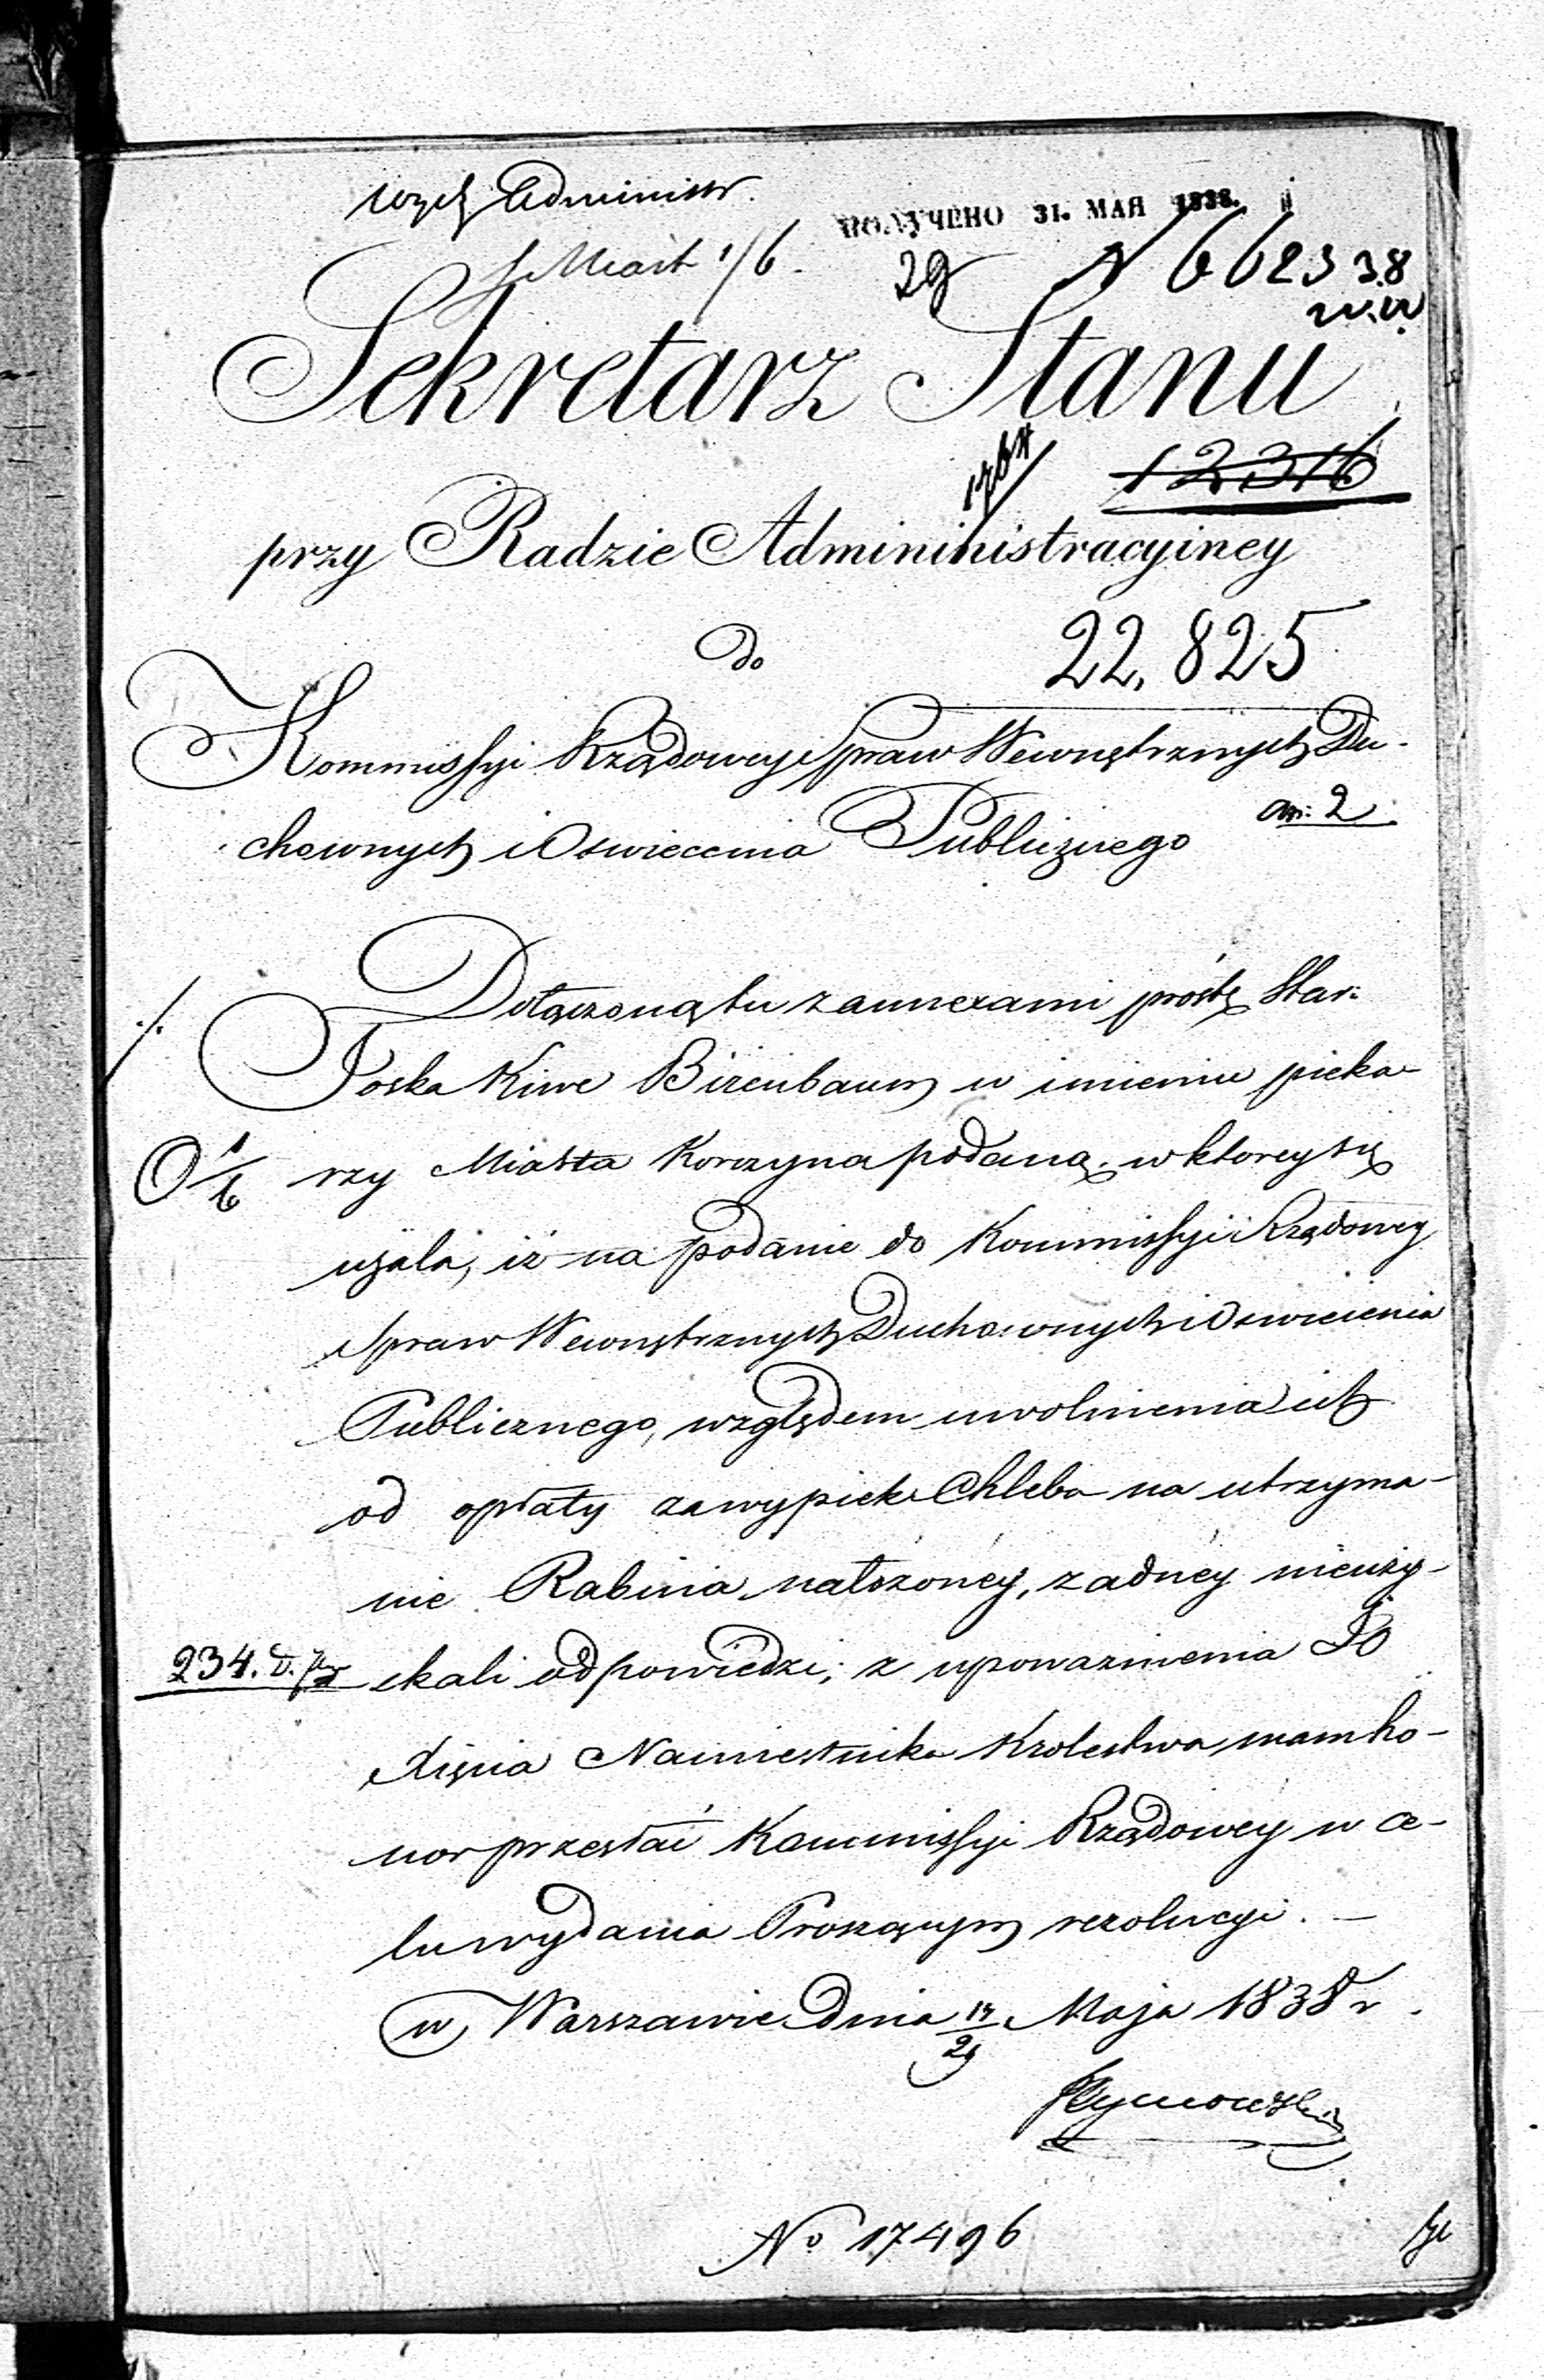 Administr.
ПОЛУЧЕНО 31. МАЯ 1838.
Miast 1/6.
29 N 6623 38
Sekretarz Stanu
12316
przy Radzie Admininistracyiney
do
22,825
Kommissyi Rządowey Spraw Wewnętrznych Du-
an: 2.
chownych i Oswiecenia Publicznego
./. Dołączoną tu z annexami prośbę Star:
Joska Kiwe Birenbaum w imieniu pieka-
O 1/6 rzy Miasta Korczyna podaną, w ktorey się
użala, iż na podanie do Kommissyi Rządowey
Spraw Wewnętrznych Duchownych i Oswiecenia
Publicznego, względem uwolnienia ich
od opłaty za wypiek Chleba na utrzyma-
nie Rabina nałożoney, żadney nieuzy-
234. D. skali odpowiedzi; z upoważnienia JO
Xięcia Namiestnika Krolestwa mam ho-
nor przesłać Kommissyi Rządowey w ce-
lu wydania Proszącym rezolucyi. —
w Warszawie dnia 17/29 Maja 1838 r.
No 17496